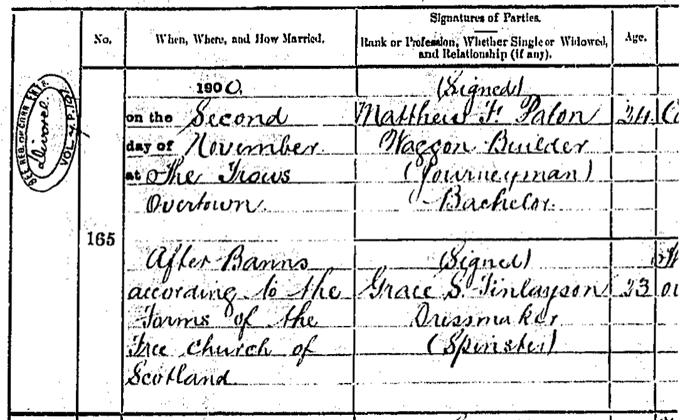 No.
When, Where, and How Married.
Signatures of Parties.
Rank or Profession, Whether Single or Widowed,
and Relationship (if any).
Age.
SEE REG. OF CORR. ENTR.
Divorce
VOL. P.
165
1900.
on the Second
day of November
at The Trows
Overtown.
After Banns
according to the
Forms of the
Free Church of
Scotland
(Signed)
Matthew F Paton
Waggon Builder
(Journeyman)
Bachelor.
34
(Signed)
Grace S. Finlayson
Dressmaker
(Spinster)
33